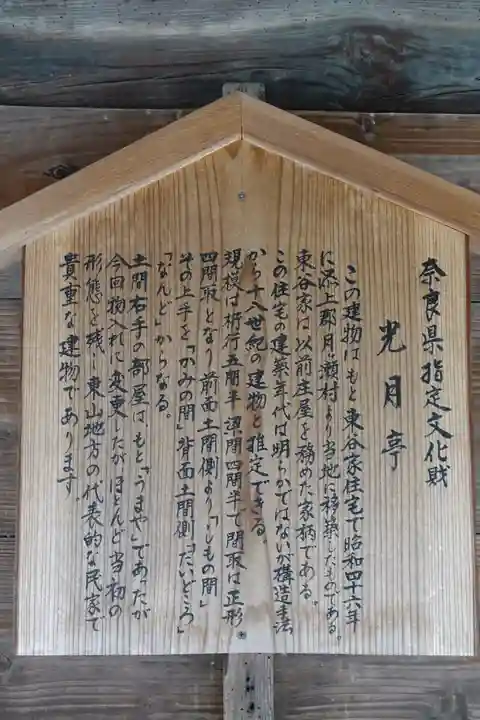 奈良県指定文化財
光月亭
この建物はもと東谷家住宅で昭和四十六年
に添上郡月ヶ瀬村より当地に移築したものである。
東谷家は以前庄屋を務めた家柄である。
この住宅の建築年代は明らかではないが構造手法
から十八世紀の建物と推定できる。
規模は桁行五間半 梁間四間半で間取は正形
四間取となり前面土間側より「しもの間」
その上手を「かみの間」背面土間側「だいどころ」
「なんど」からなる。
土間右手の部屋は、もと「うまや」であったが
今回物入れに変更したがほとんど当初の
形態を残し東山地方の代表的な民家で
貴重な建物であります